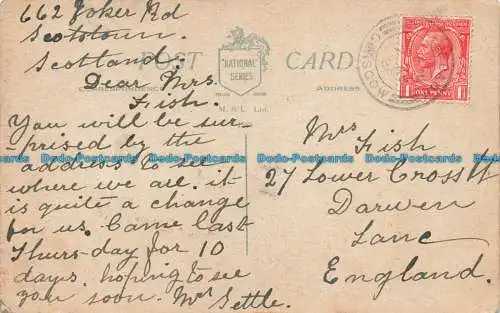 662 Joker Rd
Scotstown.
Scotland.
POST CARD
"NATIONAL"
SERIES
M. & L. Ltd.
CORRESPONDENCE
ADDRESS
GLASGOW
ONE PENNY
Dear Mrs.
Fish.
You will be sur-
prised by the
address to see
where we all. it
is quite a change
for us. Came last
Thurs-day for 10
days. hoping to see
you soon. Mrs Settle.
Mrs Fish
27 Lower Cross St
Darwen
Lanc
England.
Dodo-Postcards Dodo-Postcards Dodo-Postcards Dodo-Postcards